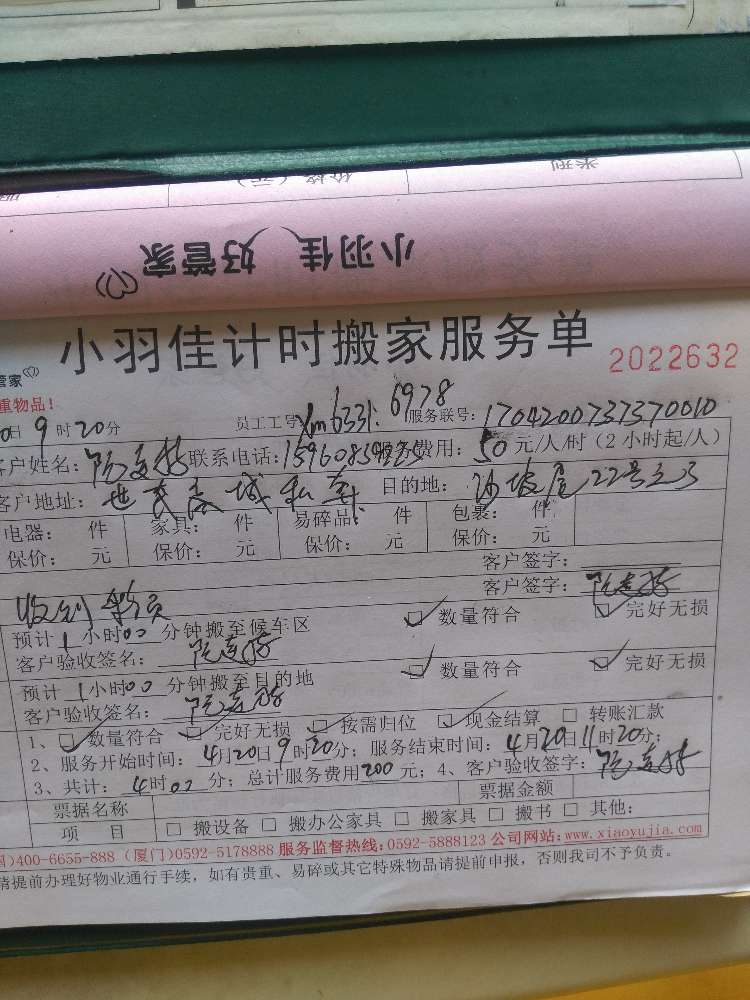 类型
价格(元)
小羽佳 好管家
小羽佳计时搬家服务单
2022632
管家
重物品!
0日9时20分 员工工号 Xm6331. 6978 服务联号:1704200737370010
客户姓名: 联系电话: 服务费用:50元/人/时(2小时起/人)
客户地址: 城 目的地:沙坡尾22号之
电器: 件 家具: 件 易碎品: 件 包裹: 件
保价: 元 保价: 元 保价: 元 保价: 元
客户签字:
客户签字:
收到
预计1小时00分钟搬至候车区 数量符合 完好无损
客户验收签名:
预计1小时00分钟搬至目的地 数量符合 完好无损
客户验收签名:
1、 数量符合 完好无损 按需归位 现金结算 转账汇款
2、服务开始时间:4月20日9时20分;服务结束时间:4月20日11时20分;
3、共计:4时00分;总计服务费用200元;4、客户验收签字:
票据名称 票据金额
项 目 搬设备 搬办公家具 搬家具 搬书 其他:
)400-6655-888 (厦门)0592-5178888 服务监督热线:0592-5888123 公司网站:www.xiaoyujia.com
请提前办理好物业通行手续,如有贵重、易碎或其它特殊物品请提前申报,否则我司不予负责。